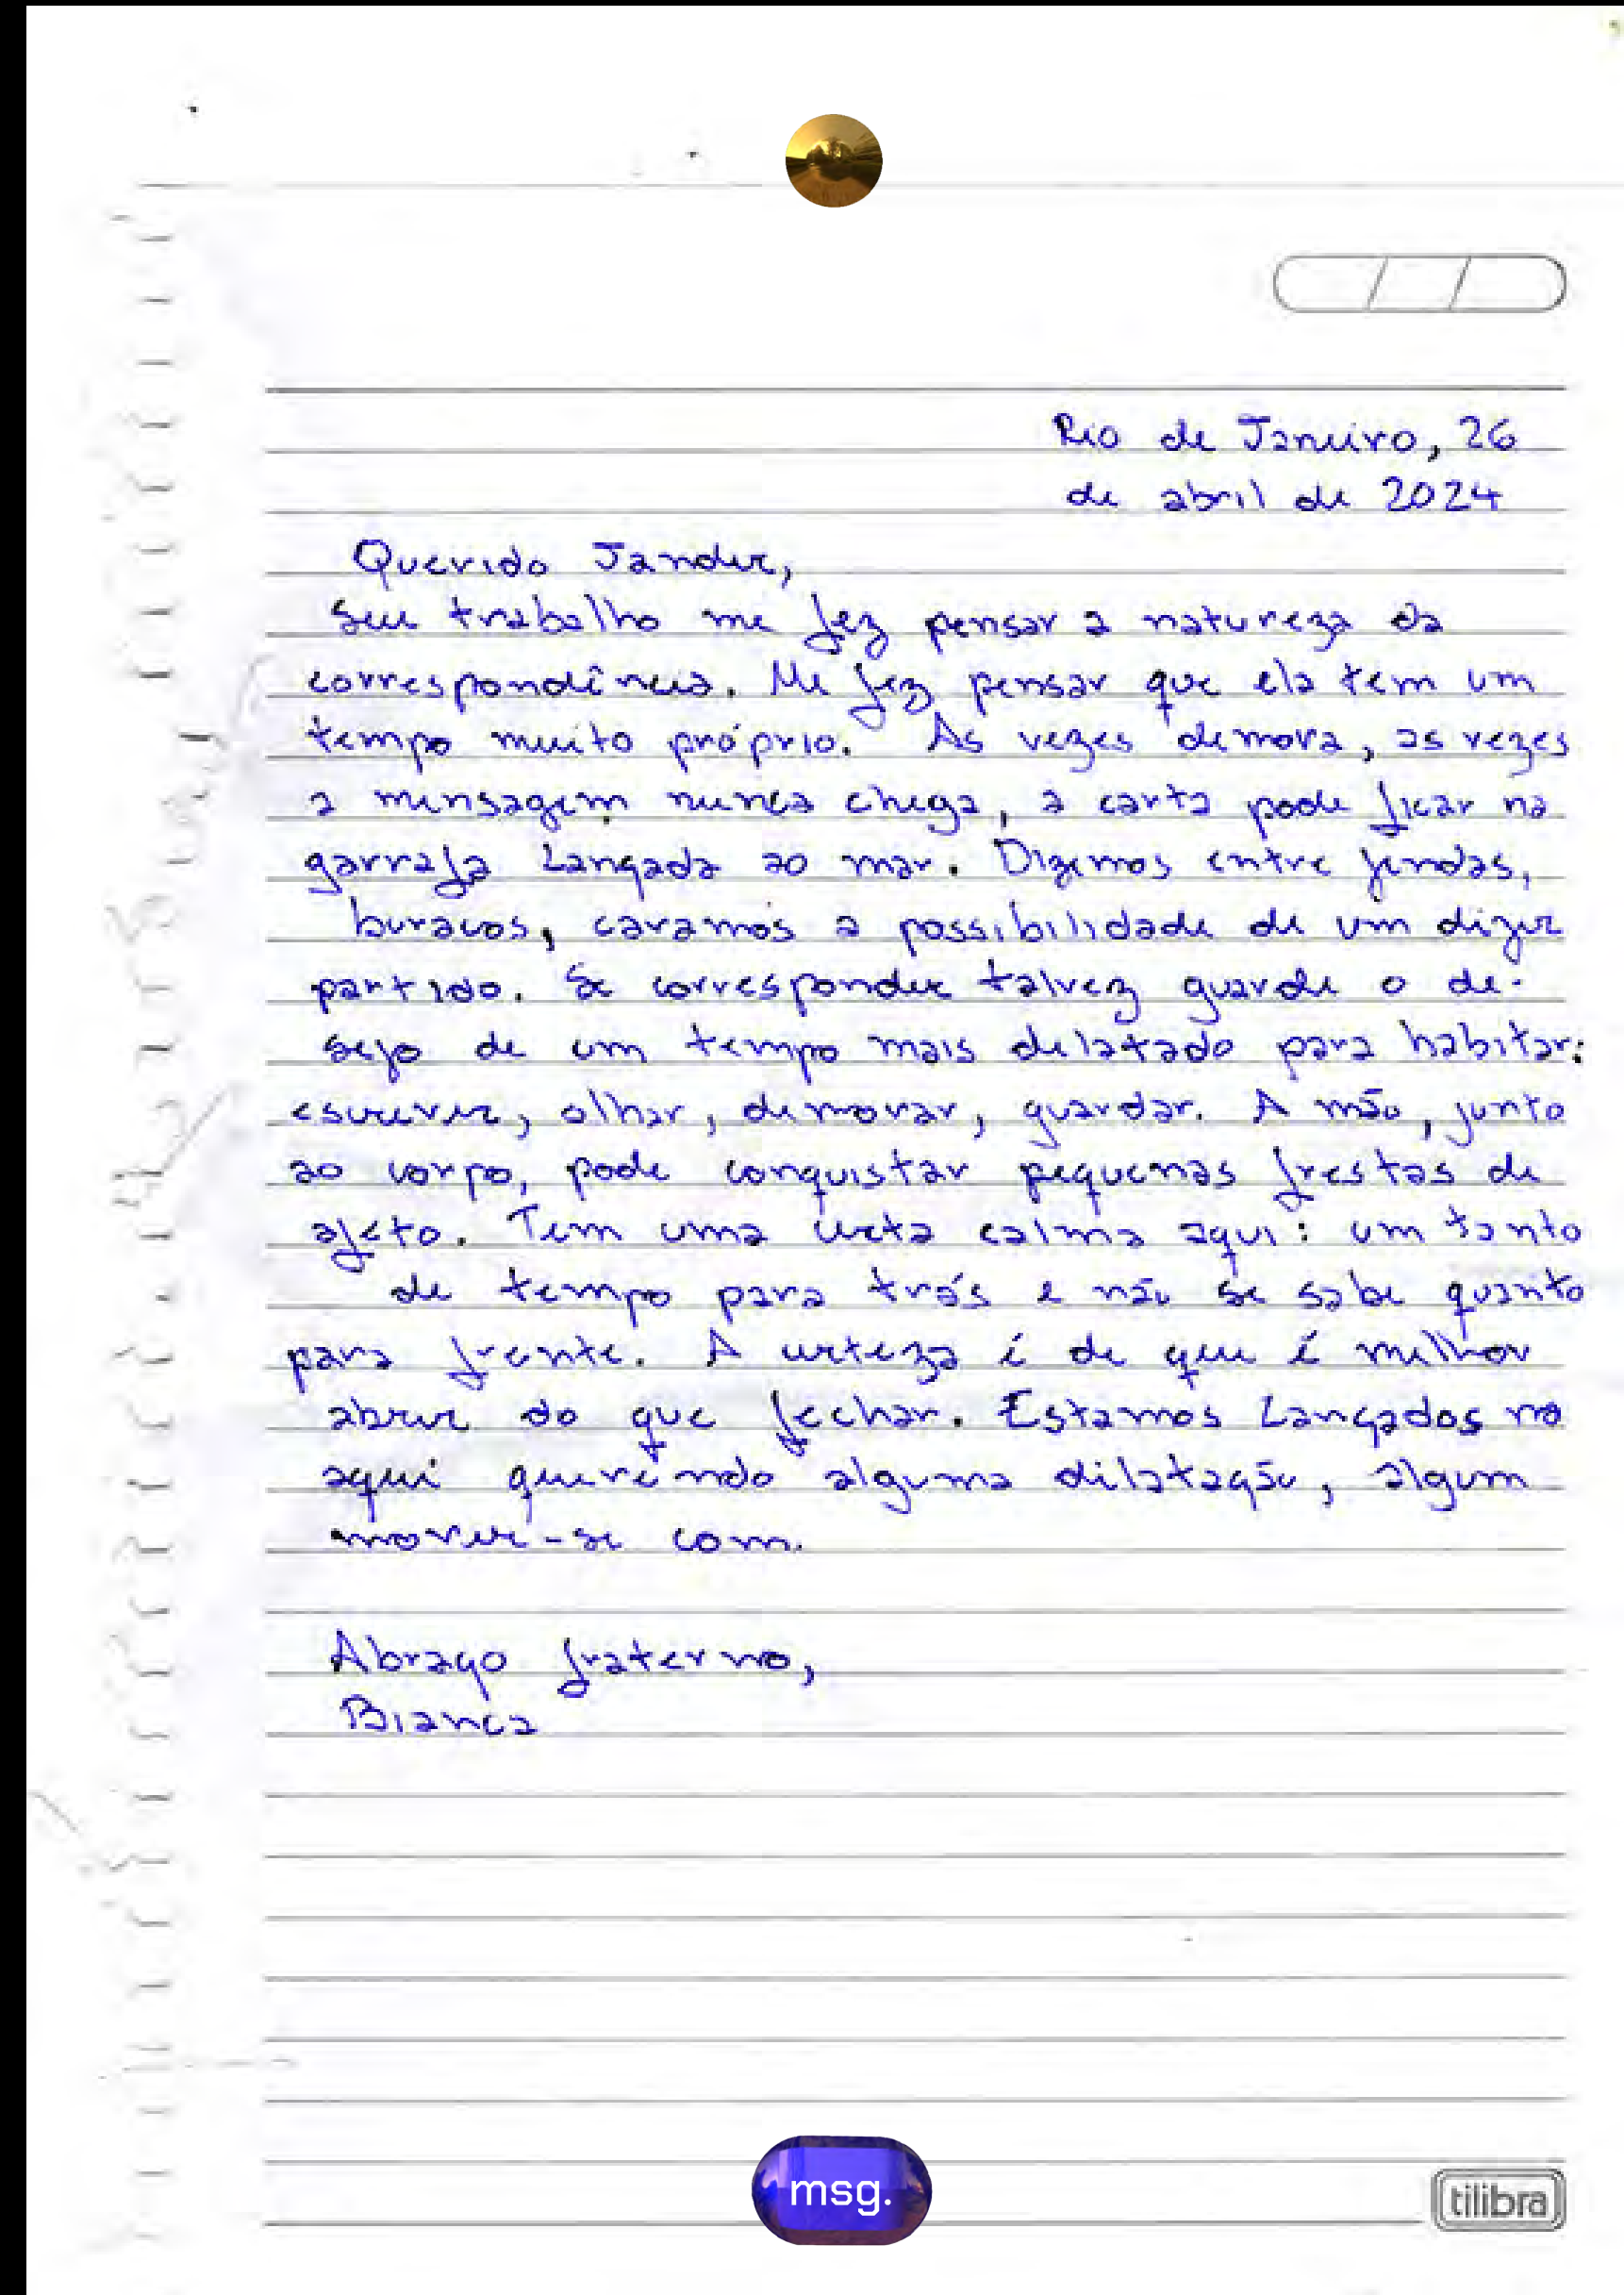 Rio de Janeiro, 26
de abril de 2024
Querido Jander,
Seu trabalho me fez pensar a natureza da
correspondência. Me fez pensar que ela tem um
tempo muito próprio. Às vezes demora, as vezes
a mensagem nunca chega, a carta pode ficar na
garrafa Lançada ao mar. Dizemos entre fendas,
buracos, cavamos a possibilidade de um dizer
partido. Se corresponder talvez guarde o de-
sejo de um tempo mais delatado para habitar:
escrever, olhar, demorar, guardar. A mão, junto
ao corpo, pode conquistar pequenas frestas de
afeto. Tem uma certa calma aqui: um tanto
de tempo para trás e não se sabe quanto
para frente. A certeza é de que é melhor
abrir do que fechar. Estamos Lançados no
aqui querendo alguma dilatação, algum
mover-se com.
Abraço fraterno,
Bianca
msg.
tilibra